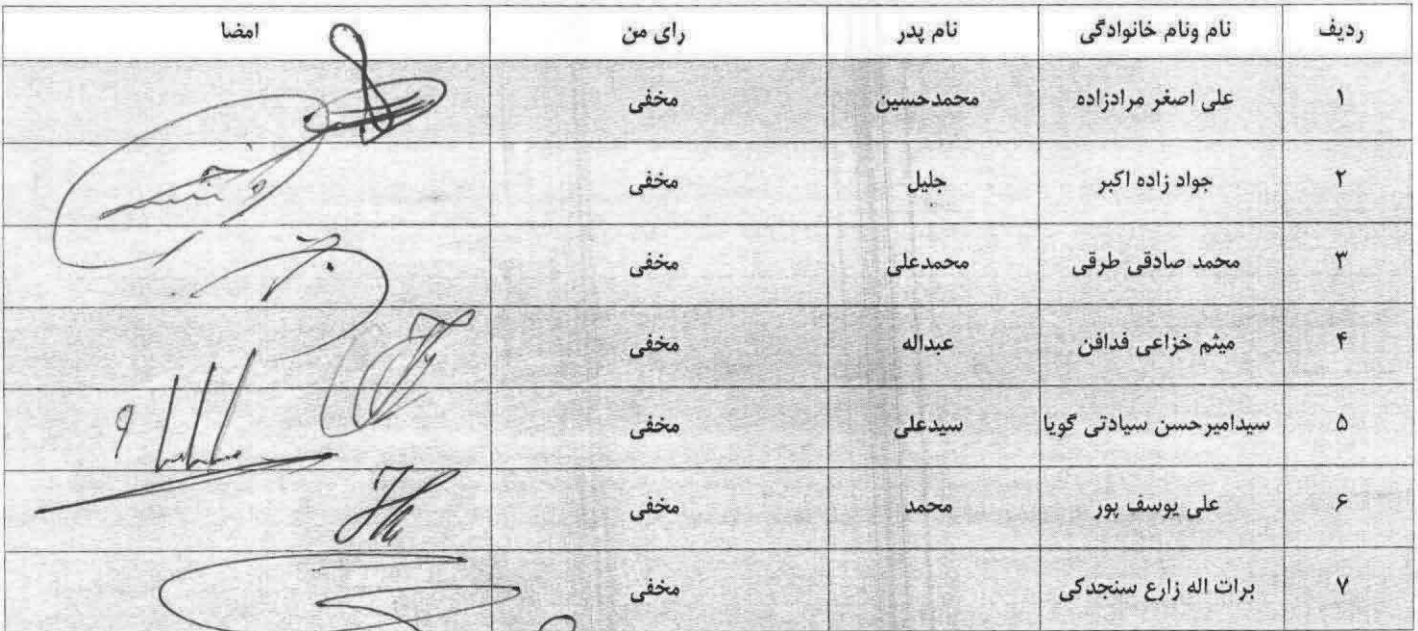 ردیف نام ونام خانوادگی نام پدر رای من امضا
۱ علی اصغر مرادزاده محمدحسین مخفی
۲ جواد زاده اکبر جلیل مخفی
۳ محمد صادقی طرقی محمدعلی مخفی
۴ میثم خزاعی فدافن عبداله مخفی
۵ سیدامیرحسن سیادتی گویا سیدعلی مخفی
۶ علی یوسف پور محمد مخفی
۷ برات اله زارع سنجدکی مخفی